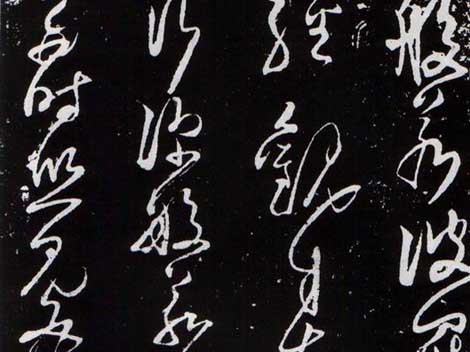 般若波羅
經觀自在
行深般若
多時照見五